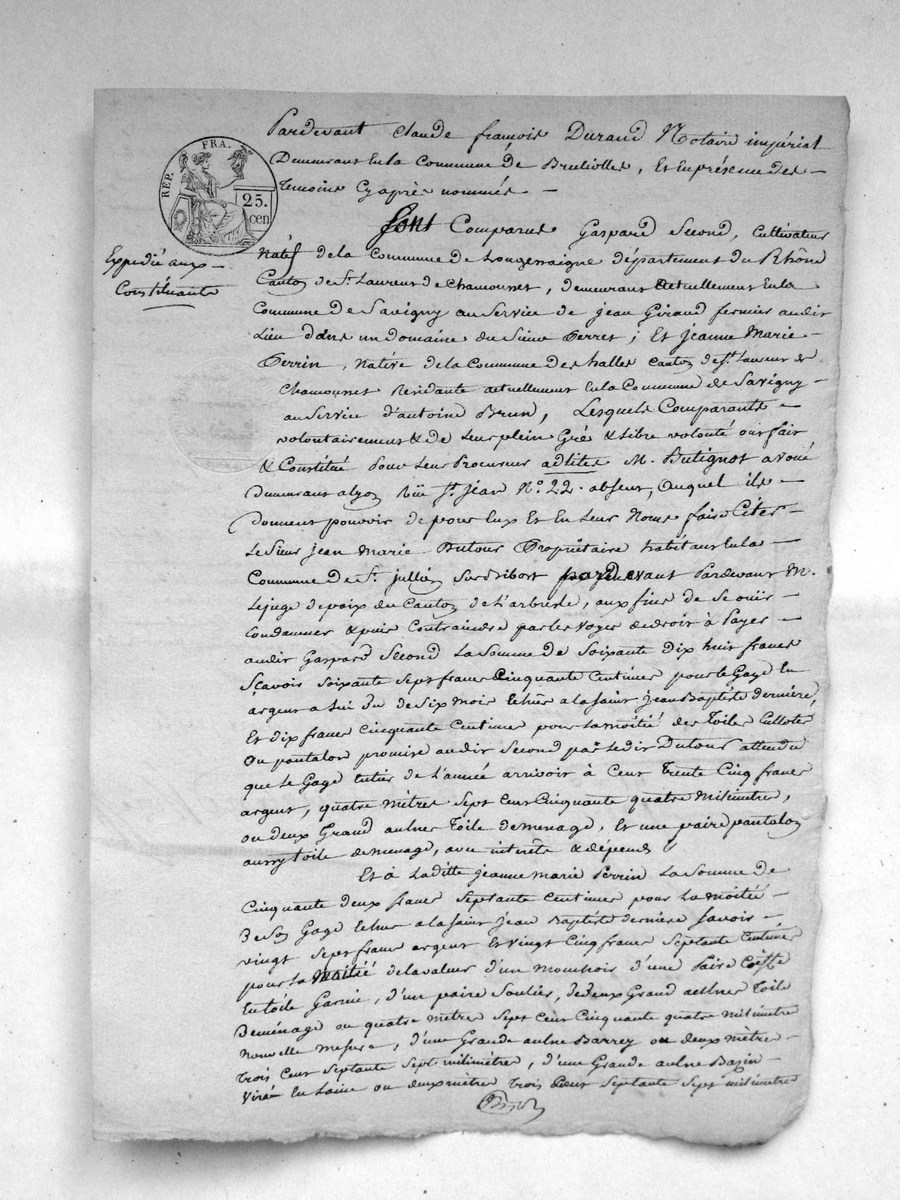 REP. FRA.
25.
cen
Pardevant Claude françois Durand Notaire impérial
Demeurant En la Commune de Brulliolles, Et En présence des
temoins Cy après nommés
Sont Comparus Gaspard Second, Cultivateur
Expedié aux
Constituants
Natif de la Commune de Longessaigne département du Rhône
Canton de St. Laurent de Chamousset, demeurant actuellement En la
Commune de Savigny au Service de jean Giraud fermier audit
Lieu dans un Domaine du Sieur Perret; Et jeanne Marie
Perrin, Native de la Commune des halles Canton de St. Laurent de
Chamousset Residante actuellement En la Commune de Savigny
au Service d'antoine Brun, Lesquels Comparants
volontairement & de Leur plein Gré & Libre volonté ont fait
& Constitué Pour Leur Procureur adlites M. Butignot avoué
Demeurant alyon Rüe St. jean No. 22. absent, auquel ils
donnent pouvoir de pour Eux Et En Leur Noms faire Citer
Le Sieur jean Marie Dutour Propriétaire habitant En la
Commune de St. jullien Sur Bibost pardevant Pardevant M.
Le juge de paix du Canton de L'arbresle, aux fins de Se ouïr
Condamner & puis Contraindre par les voyes de droit à Payer
audit Gaspard Second La Somme de Soixante dix huit francs
Scavoir Soixante Sept francs Cinquante Centimes pour le Gage En
argent a Lui Du de Six mois Echus a la Saint jean Baptiste dernière,
Et dix francs Cinquante Centimes pour la moitié des Toiles Culottes
Ou pantalon promise audit Second par Ledit Dutour attendu
que Le Gage Entier de L'année arrivoit à Cent Trente Cinq francs
argent, quatre Mètres Sept Cent Cinquante quatre Milimètres,
ou deux Grand aulnes Toile de menage, Et une paire pantalon
aussy toile de menage, avec intérêts & dépends
Et à Laditte jeanne marie Perrin La Somme de
Cinquante deux francs Septante Centimes pour la moitié
De Son Gage Echus a la Saint jean Baptiste dernière Savoir
vingt Sept francs argent Et vingt Cinq francs Septante Centimes
pour la Moitié de la valeur d'un mouchoir d'une Paire Coiffe
En toile Garnie, d'un paire Soulier, de deux Grand aulnes Toile
De ménage ou quatre mètres Sept Cent Cinquante quatre milimètres
Nouvelle mesure, d'une Grande aulne Barrey ou deux mètres
Trois Cent Septante Sept milimètres, d'une Grande aulne Bazin
Viré En Laine ou deux mètres Trois Cent Septante Sept milimètres